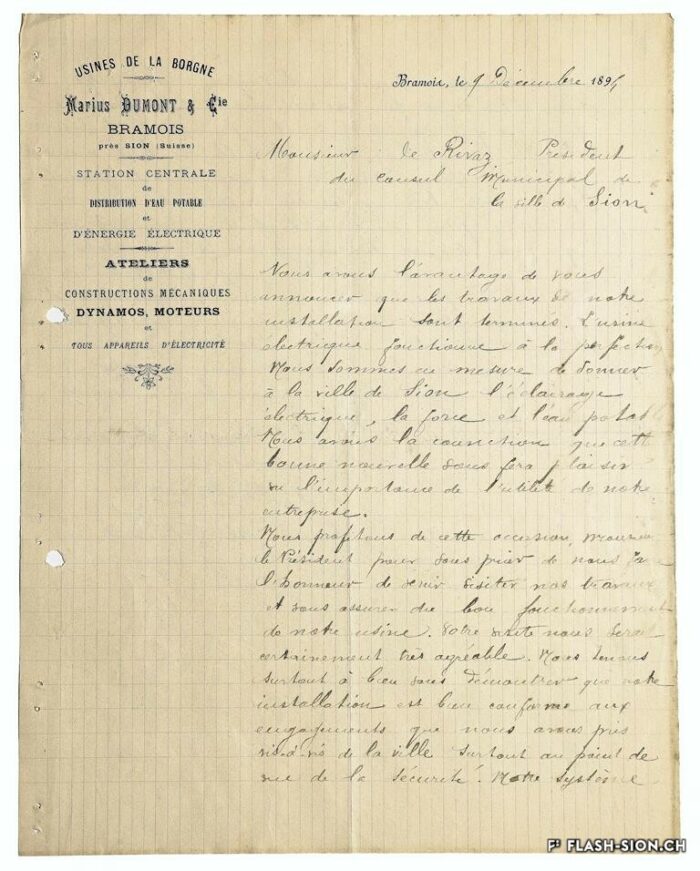 USINES DE LA BORGNE
Marius DUMONT & Cie
BRAMOIS
près SION (Suisse)
STATION CENTRALE
de
DISTRIBUTION D'EAU POTABLE
et
D'ÉNERGIE ÉLECTRIQUE
ATELIERS
de
CONSTRUCTIONS MÉCANIQUES
DYNAMOS, MOTEURS
et
TOUS APPAREILS D'ÉLECTRICITÉ
Bramois, le 9 Décembre 189
Monsieur de Rivaz Président
du Conseil Municipal de
la ville de Sion
Nous avons l'avantage de vous
annoncer que les travaux de notre
installation sont terminés. L'usine
électrique fonctionne à la perfection
Nous sommes en mesure de donner
à la ville de Sion l'éclairage
électrique, la force et l'eau potable
Nous avons la conviction que cette
bonne nouvelle vous fera plaisir
vu l'importance de l'utilité de notre
entreprise.
Nous profitons de cette occasion, Monsieur
le Président pour vous prier de nous faire
l'honneur de venir visiter nos travaux
et vous assurer du bon fonctionnement
de notre usine. Votre visite nous serait
certainement très agréable. Nous tenons
surtout à bien vous démontrer que notre
installation est bien conforme aux
engagements que nous avons pris
vis-à-vis de la ville surtout au point de
vue de la sécurité. Notre système
FLASH-SION.CH